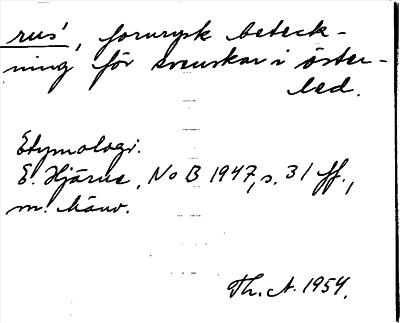 rus', fornrysk beteck-
ning för svenskar i öster-
led.
Etymologi.
E. Hjärne, NoB 1947, s. 31 ff.,
m. hänv.
Th. A. 1954.